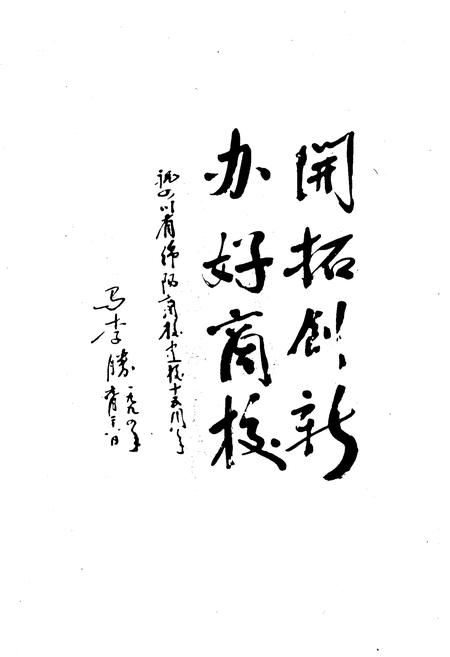 開拓創新
办好商校
祝四川省绵阳商校建校十五周年
马李勝
一九九〇年